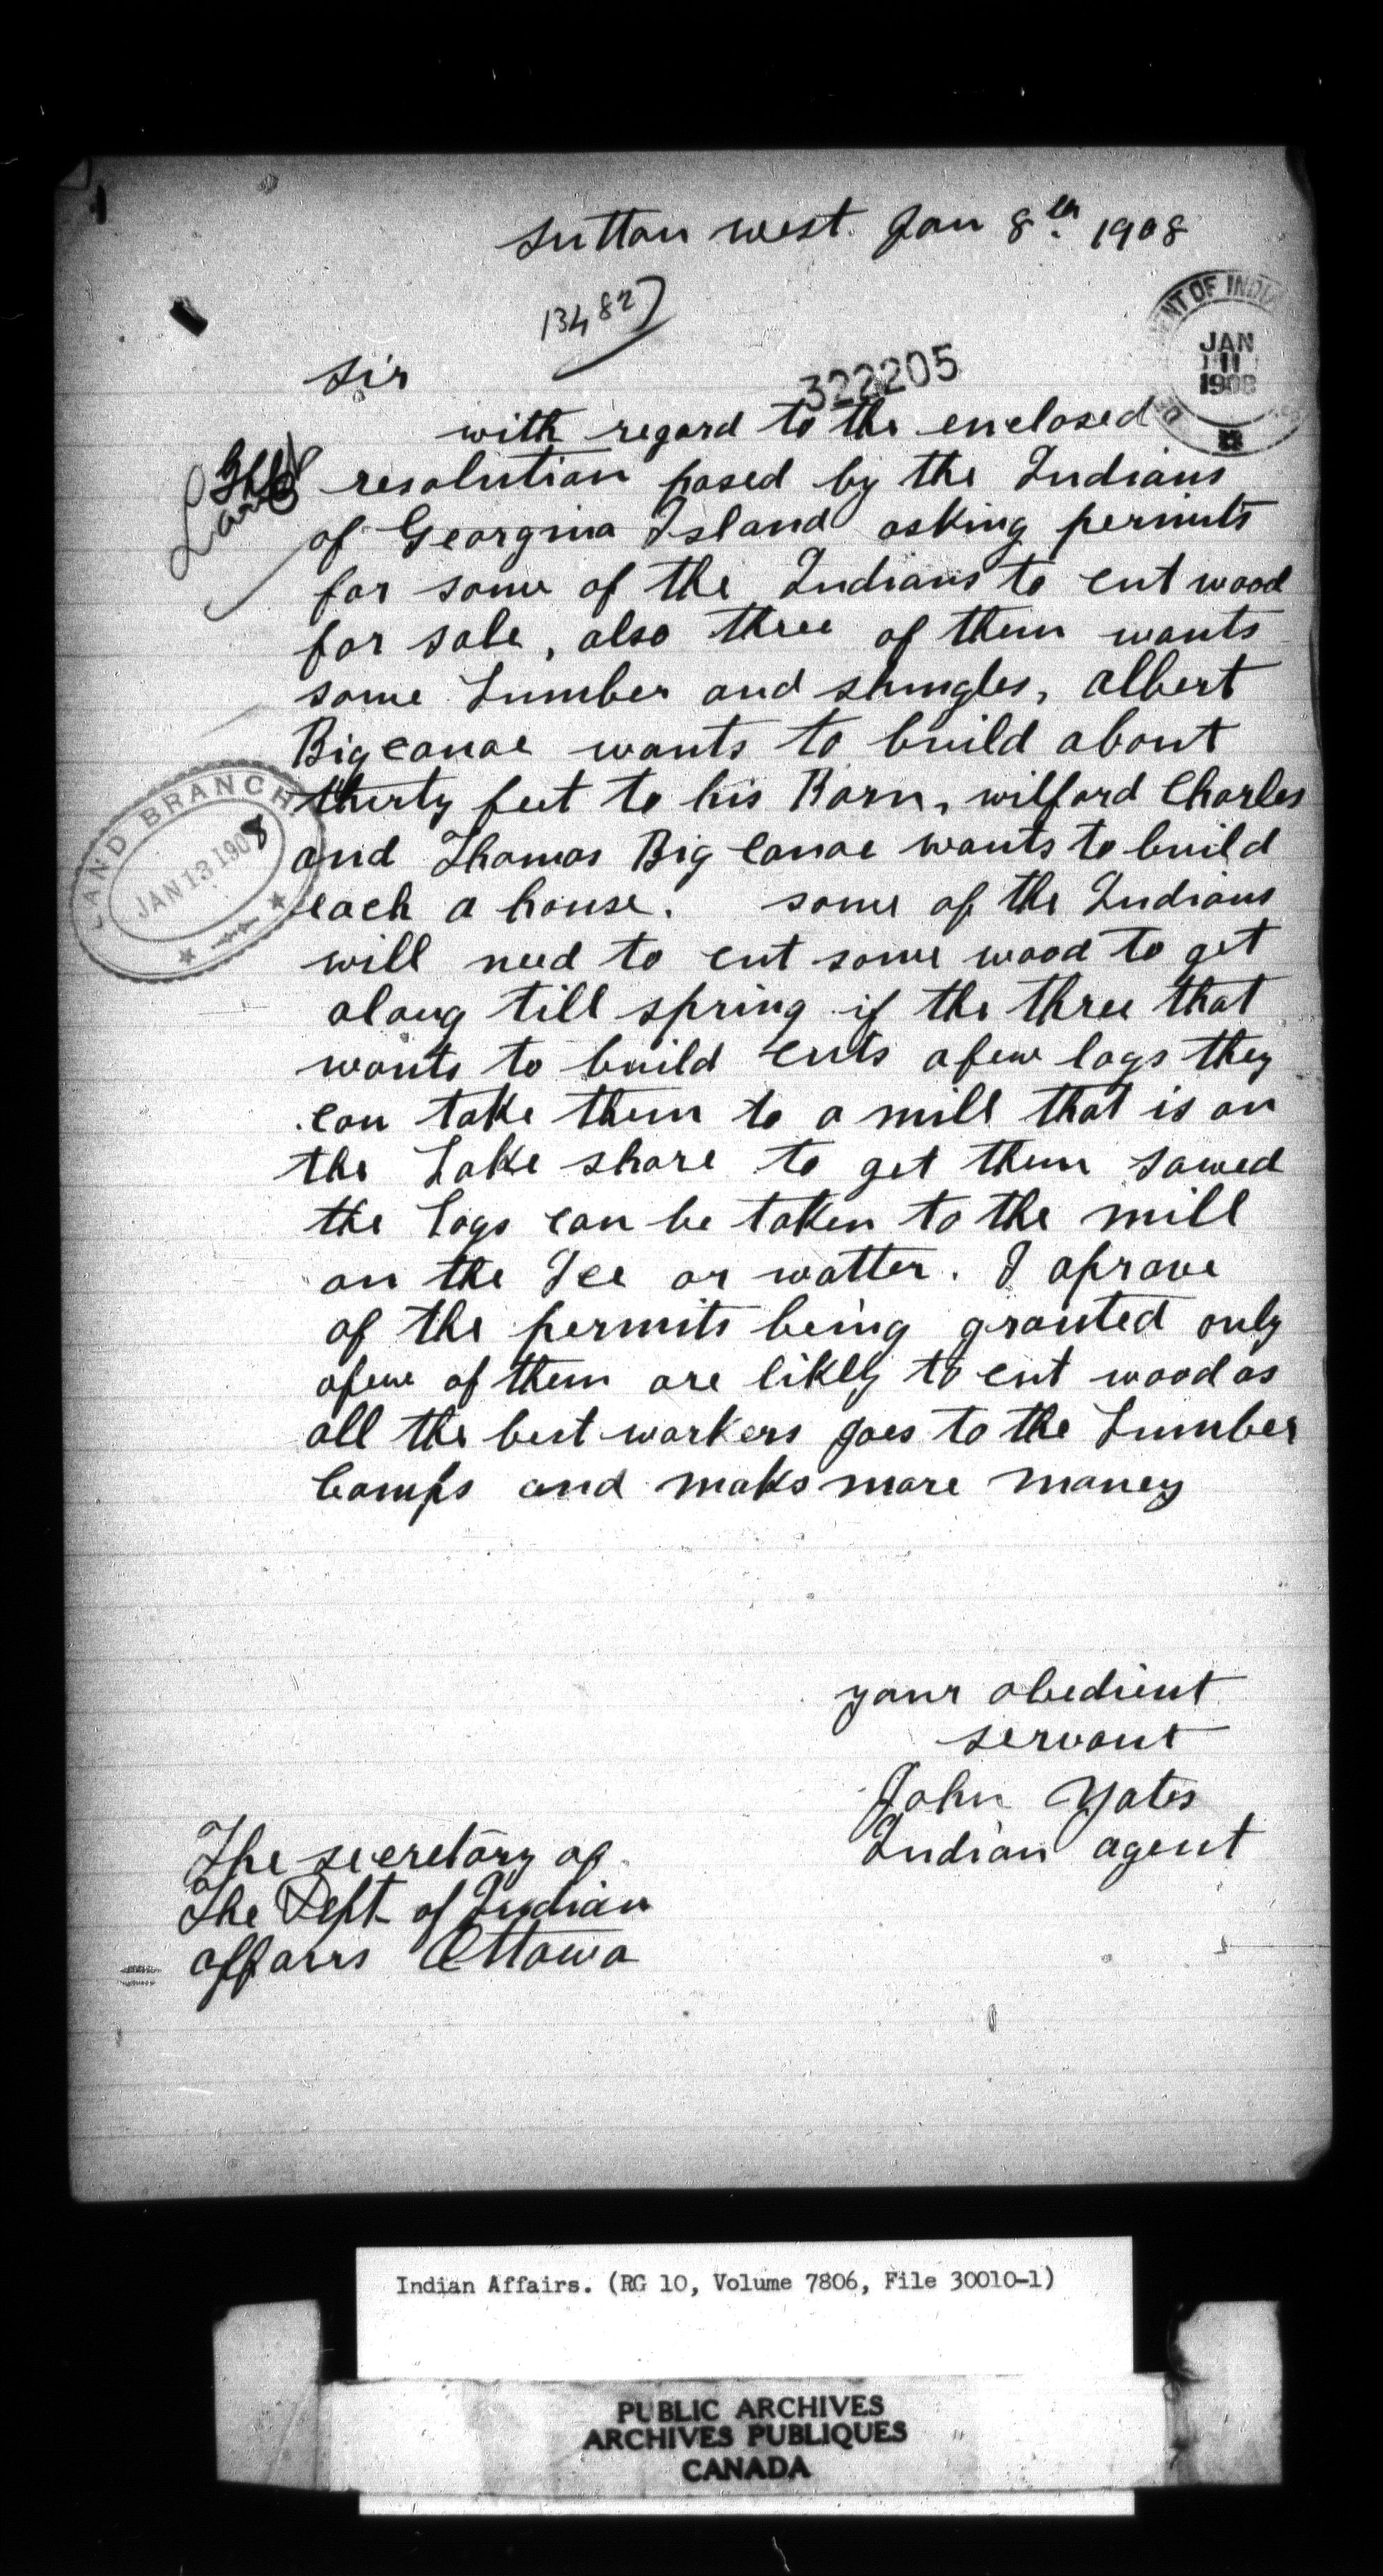 Sutton west. Jan 8th 1908
13482
322205
DEPARTMENT OF INDIAN
JAN
11
1908
Sir
with regard to the enclosed
resolution pased by the Indians
of Georgina Island asking permits
for some of the Indians to cut wood
for sale, also three of them wants
some Lumber and shingles, Albert
Bigcanoe wants to build about
thirty feet to his Barn, wilford Charles
and Thomas Big Canoe wants to build
each a house. some of the Indians
will need to cut some wood to get
along till spring if the three that
wants to build cuts afew logs they
can take them to a mill that is on
the Lake shore to get them sawed
the Logs can be taken to the mill
on the Ice or watter. I aprove
of the permits being granted only
afew of them are likly to cut wood as
all the best workers goes to the Lumber
Camps and maks more money
Land
LAND BRANCH
JAN 13 1908
your obedient
servant
John Yates
Indian agent
The secretary of
The Dept of Indian
affairs Ottawa
Indian Affairs. (RG 10, Volume 7806, File 30010-1)
PUBLIC ARCHIVES
ARCHIVES PUBLIQUES
CANADA